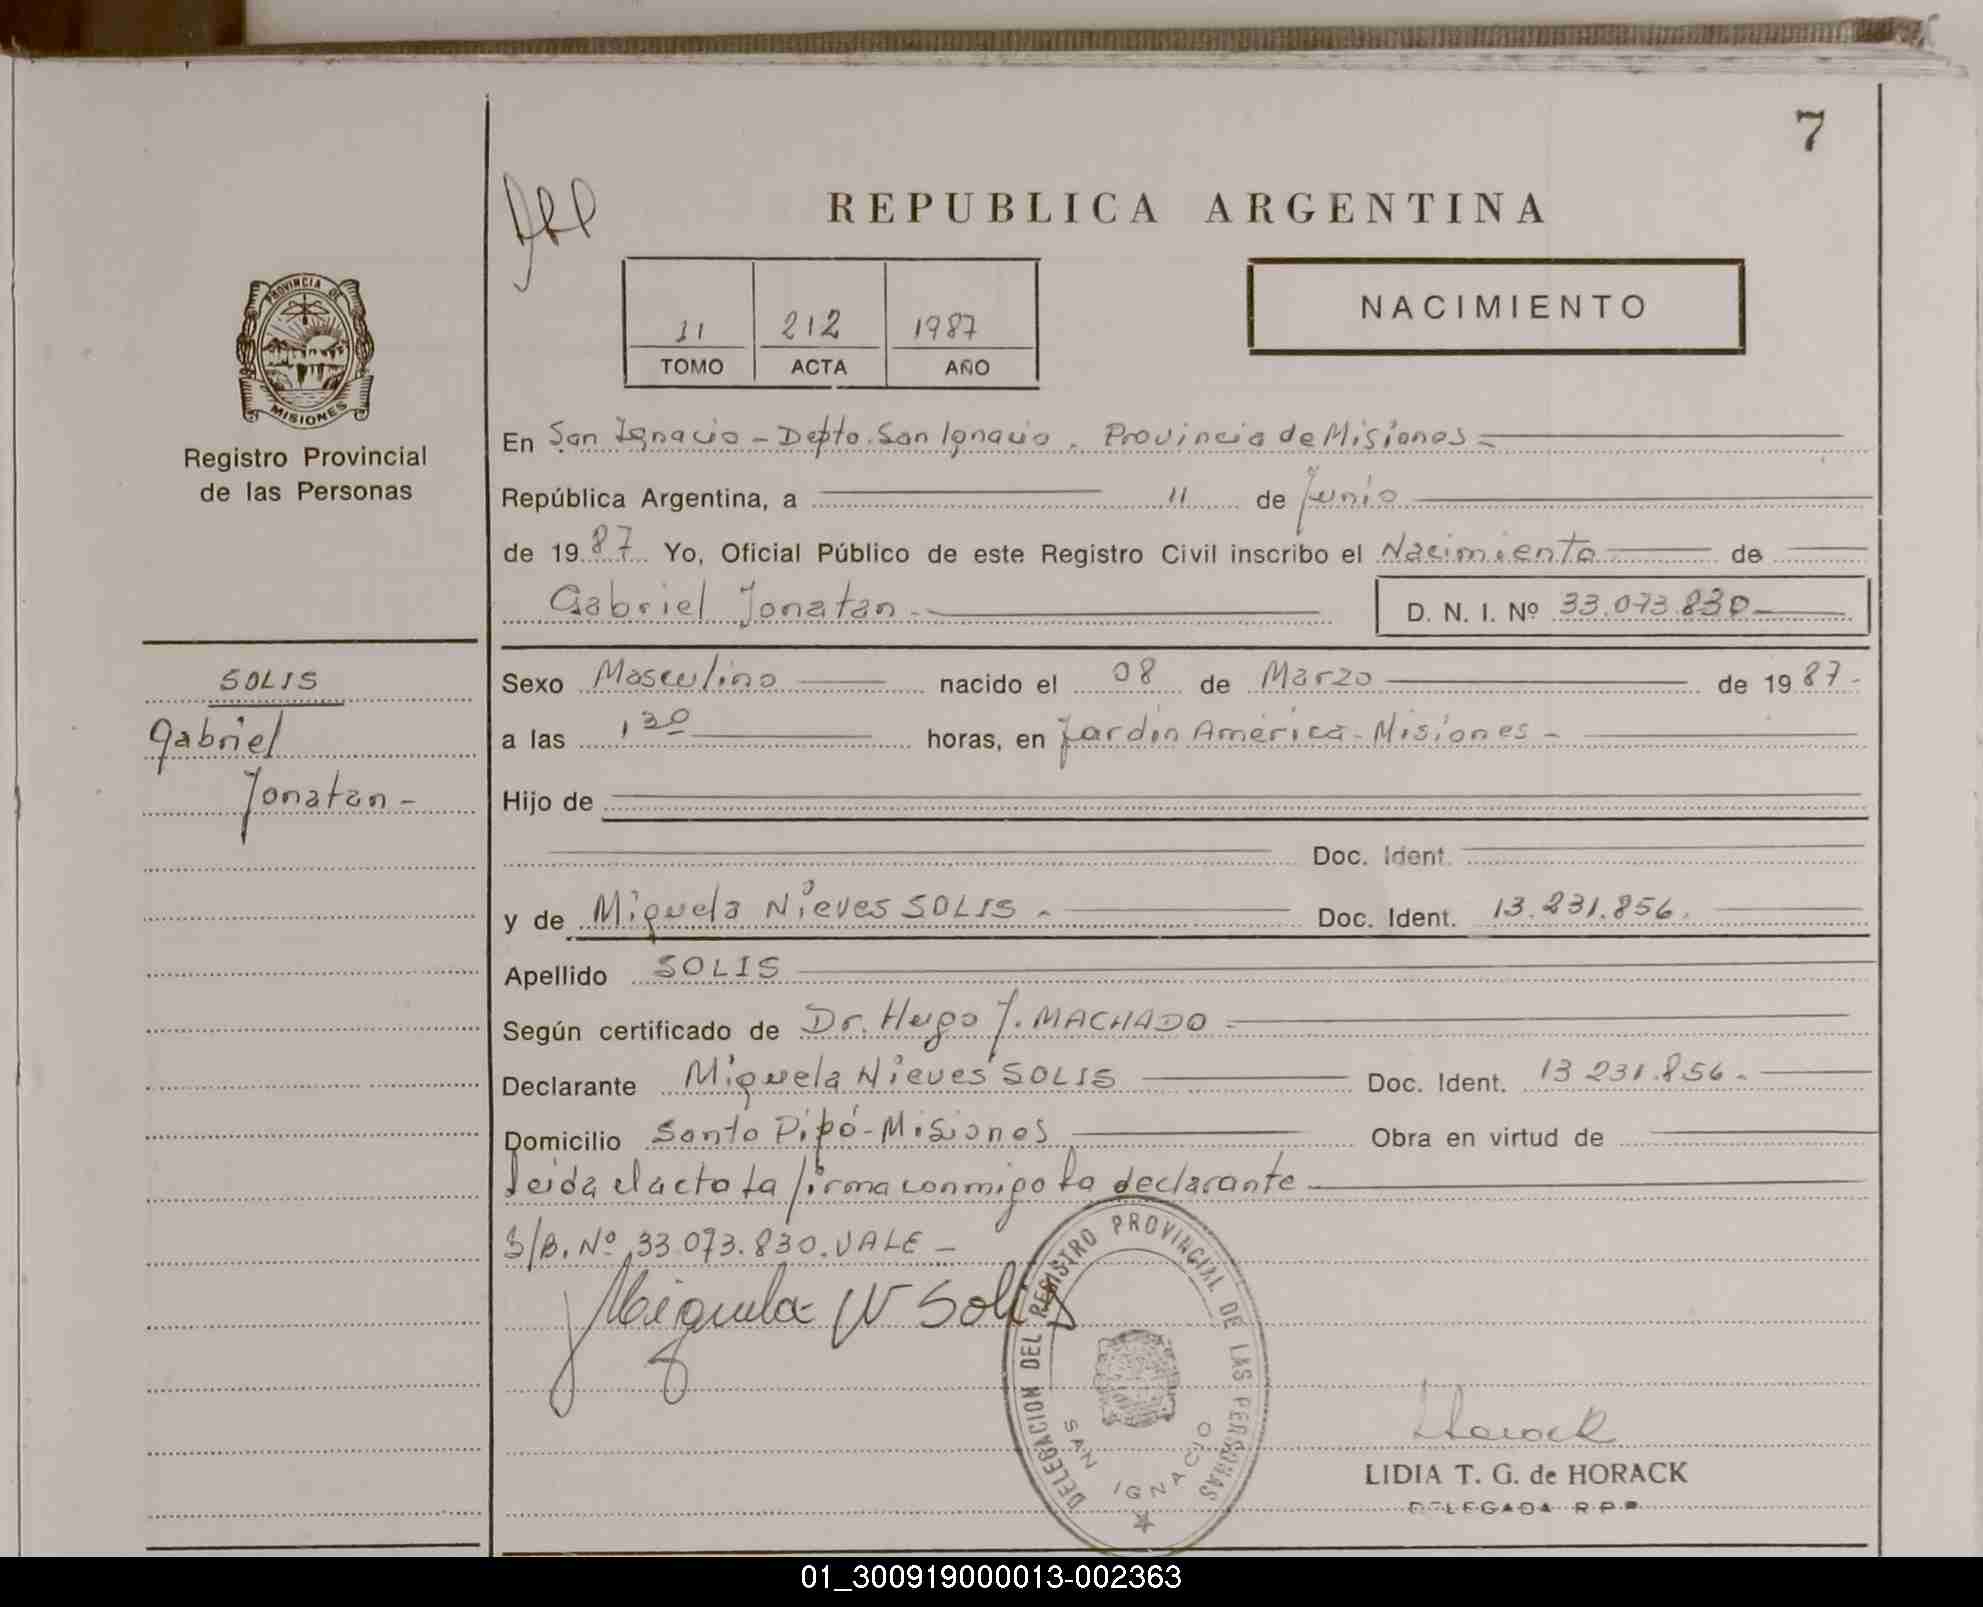 7
REPUBLICA ARGENTINA
PROVINCIA DE
MISIONES
Registro Provincial
de las Personas
11 212 1987
TOMO ACTA AÑO
NACIMIENTO
En San Ignacio - Depto. San Ignacio. Provincia de Misiones -
República Argentina, a 11 de Junio
de 1987 Yo, Oficial Público de este Registro Civil inscribo el Nacimiento de
Gabriel Jonatan. D. N. I. Nº 33.073.830
SOLIS
Gabriel
Jonatan -
Sexo Masculino nacido el 08 de Marzo de 1987-
a las 1,30 horas, en Jardín América - Misiones -
Hijo de
Doc. Ident.
y de Miguela Nieves SOLIS. Doc. Ident. 13.231.856.
Apellido SOLIS
Según certificado de Dr. Hugo J. MACHADO -
Declarante Miguela Nieves SOLIS Doc. Ident. 13 231.856.
Domicilio Santo Pipó - Misiones Obra en virtud de
Leida el acta la firma conmigo la declarante
S/B. Nº 33.073.830. VALE -
Miguela N Solis
DELEGACION DEL REGISTRO PROVINCIAL DE LAS PERSONAS
SAN IGNACIO
Horack
LIDIA T. G. de HORACK
DELEGADA R.P.P.
01_300919000013-002363